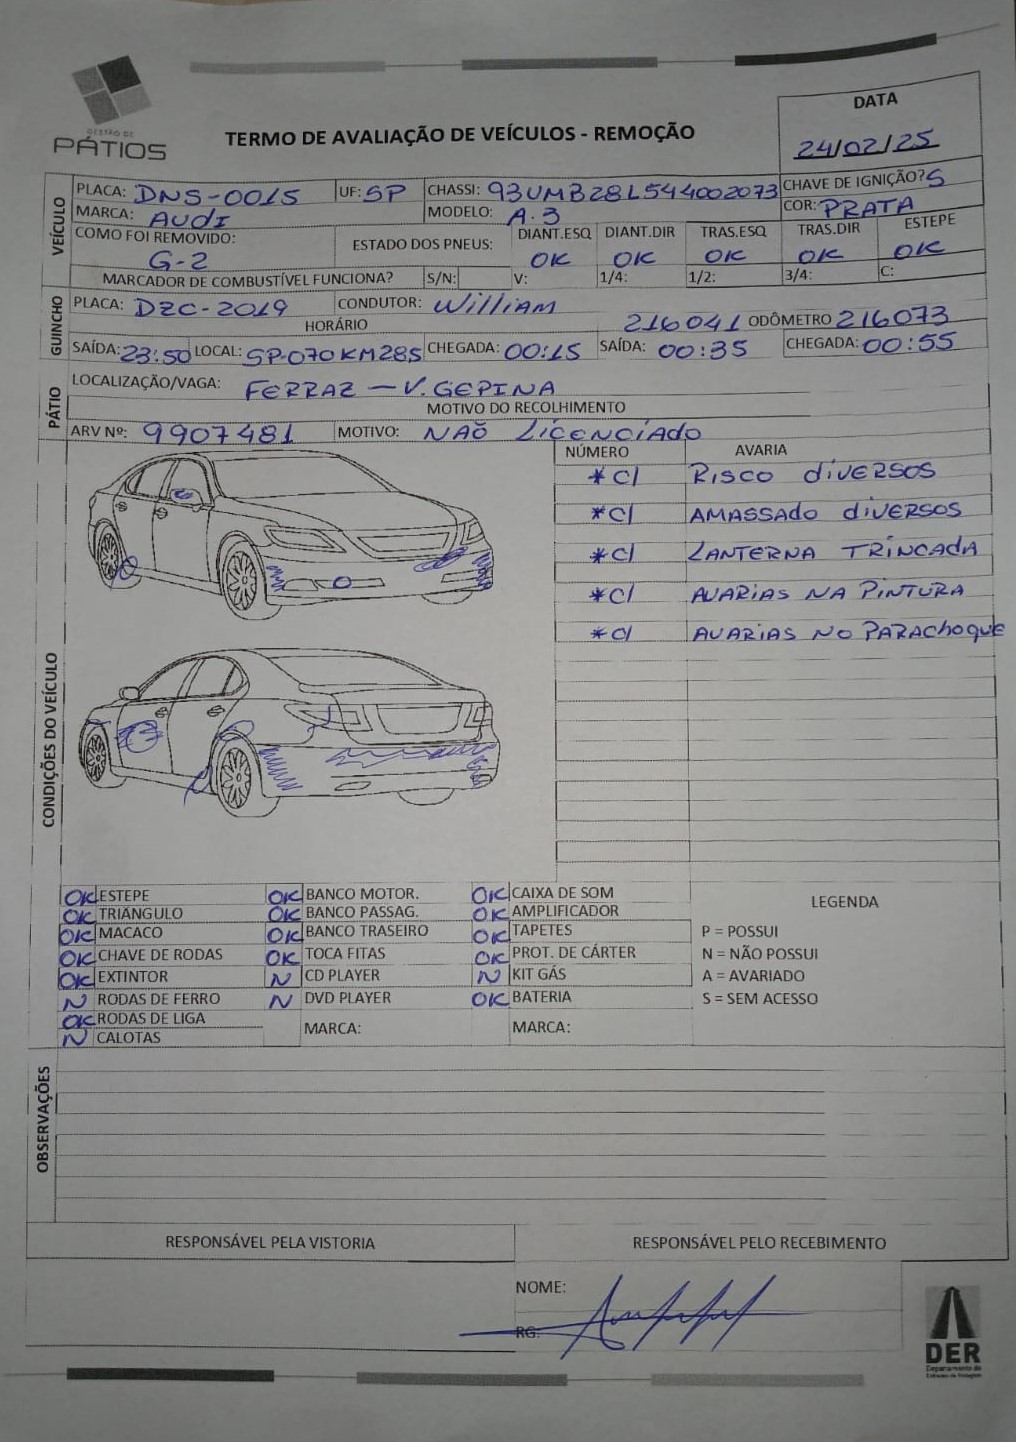 GESTÃO DE
PÁTIOS
TERMO DE AVALIAÇÃO DE VEÍCULOS - REMOÇÃO
DATA
24/02/25
VEÍCULO
PLACA: DNS-0015 UF: SP CHASSI: 93UMB28L544002073 CHAVE DE IGNIÇÃO? S
MARCA: AUDI MODELO: A.3 COR: PRATA
COMO FOI REMOVIDO: G-2 ESTADO DOS PNEUS: DIANT.ESQ OK DIANT.DIR OK TRAS.ESQ OK TRAS.DIR OK ESTEPE OK
MARCADOR DE COMBUSTÍVEL FUNCIONA? S/N: V: 1/4: 1/2: 3/4: C:
GUINCHO
PLACA: DZC-2019 CONDUTOR: William
HORÁRIO 216041 ODÔMETRO 216073
SAÍDA: 23:50 LOCAL: SP-070 KM285 CHEGADA: 00:15 SAÍDA: 00:35 CHEGADA: 00:55
PÁTIO
LOCALIZAÇÃO/VAGA: FERRAZ - V. GEPINA
MOTIVO DO RECOLHIMENTO
ARV Nº: 9907481 MOTIVO: NAÕ LICENCIADO
CONDIÇÕES DO VEÍCULO
NÚMERO AVARIA
*C/ RISCO diVERSOS
*C/ AMASSADO diVERSOS
*C/ LANTERNA TRINCADA
*C/ AVARIAS NA PINTURA
*C/ AVARIAS NO PARACHOQUE
OK ESTEPE OK BANCO MOTOR. OK CAIXA DE SOM
OK TRIÂNGULO OK BANCO PASSAG. OK AMPLIFICADOR
OK MACACO OK BANCO TRASEIRO OK TAPETES
OK CHAVE DE RODAS OK TOCA FITAS OK PROT. DE CÁRTER
OK EXTINTOR N CD PLAYER N KIT GÁS
N RODAS DE FERRO N DVD PLAYER OK BATERIA
OK RODAS DE LIGA MARCA: MARCA:
N CALOTAS
LEGENDA
P = POSSUI
N = NÃO POSSUI
A = AVARIADO
S = SEM ACESSO
OBSERVAÇÕES
RESPONSÁVEL PELA VISTORIA RESPONSÁVEL PELO RECEBIMENTO
NOME:
RG:
DER
Departamento de
Estradas de Rodagem